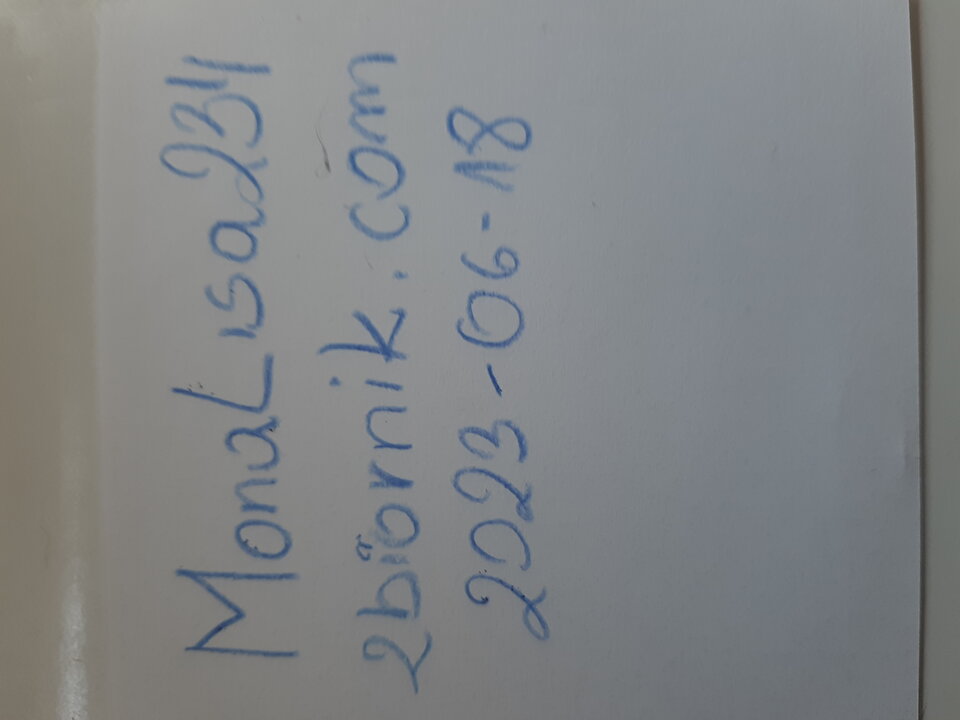 MonaLisa234
zbiornik.com
2023-06-18